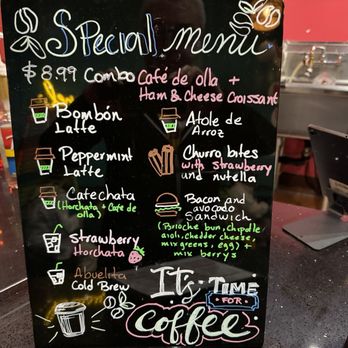 Special menu
$8.99 Combo Café de olla +
Ham & Cheese Croissant
Bombón
Latte
Peppermint
Latte
Cafechata
(Horchata + Cafe de
olla)
Strawberry
Horchata
Abuelita
Cold Brew
Atole de
Arroz
Churro bites
with strawberry
and nutella
Bacon and
avocado
Sandwich
(Brioche bun, chipotle
aioli, cheddar cheese,
mix greens, egg) +
mix berrys
It's TIME
FOR
Coffee